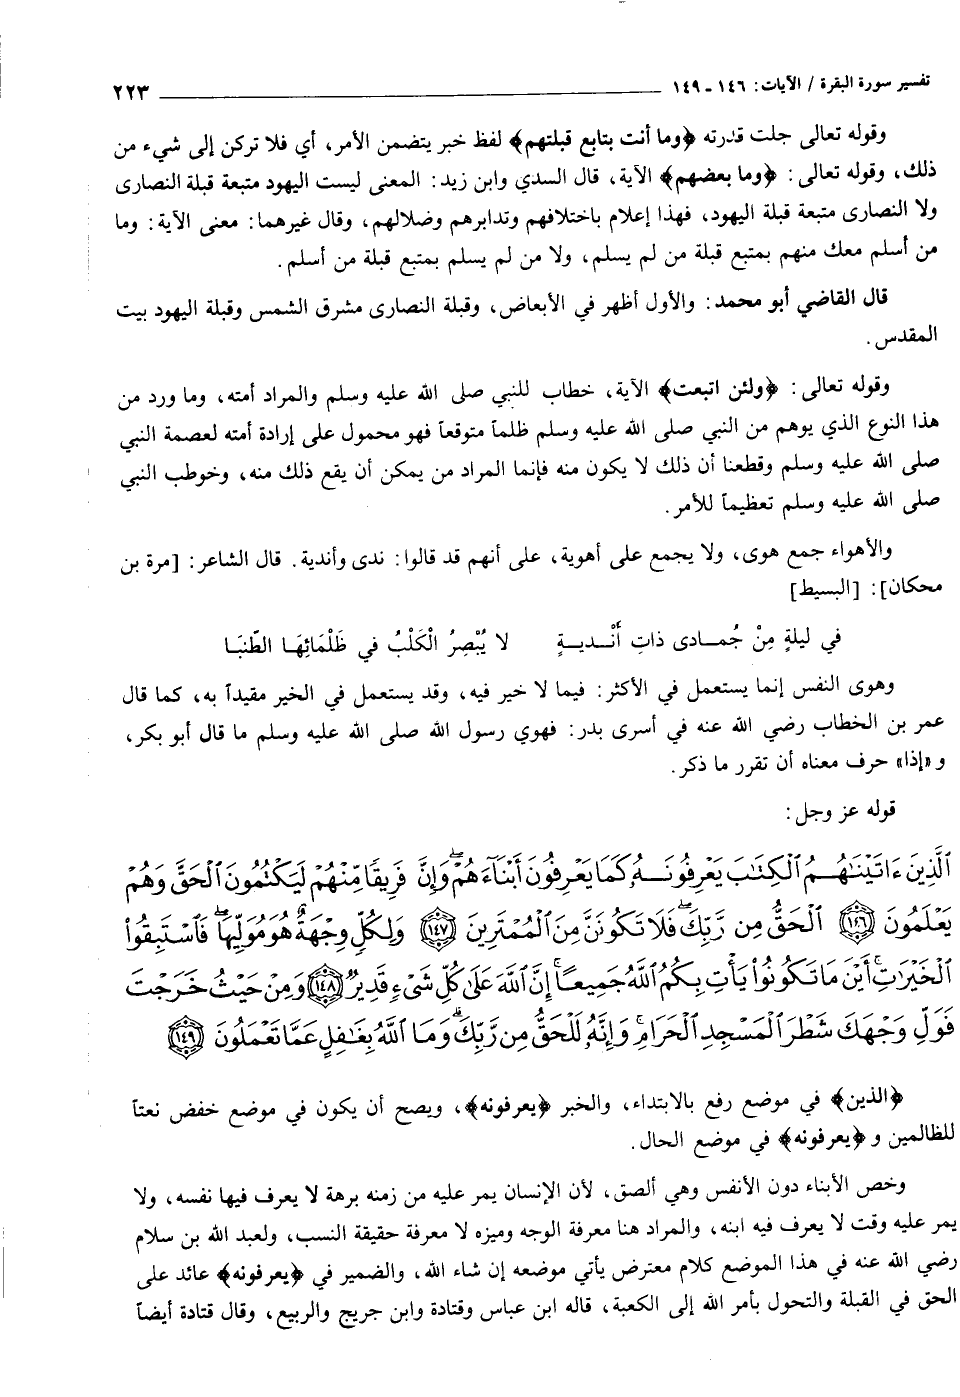 تفسير سورة البقرة / الآيات: ١٤٦ ـ ١٤٩ ٢٢٣
وقوله تعالى جلت قدرته ﴿وما أنت بتابع قبلتهم﴾ لفظ خبر يتضمن الأمر، أي فلا تركن إلى شيء من
ذلك، وقوله تعالى: ﴿وما بعضهم﴾ الآية، قال السدي وابن زيد: المعنى ليست اليهود متبعة قبلة النصارى
ولا النصارى متبعة قبلة اليهود، فهذا إعلام باختلافهم وتدابرهم وضلالهم، وقال غيرهما: معنى الآية: وما
من أسلم معك منهم بمتبع قبلة من لم يسلم، ولا من لم يسلم بمتبع قبلة من أسلم.
قال القاضي أبو محمد: والأول أظهر في الأبعاض، وقبلة النصارى مشرق الشمس وقبلة اليهود بيت
المقدس.
وقوله تعالى: ﴿ولئن اتبعت﴾ الآية، خطاب للنبي صلى الله عليه وسلم والمراد أمته، وما ورد من
هذا النوع الذي يوهم من النبي صلى الله عليه وسلم ظلماً متوقعاً فهو محمول على إرادة أمته لعصمة النبي
صلى الله عليه وسلم وقطعنا أن ذلك لا يكون منه فإنما المراد من يمكن أن يقع ذلك منه، وخوطب النبي
صلى الله عليه وسلم تعظيماً للأمر.
والأهواء جمع هوى، ولا يجمع على أهوية، على أنهم قد قالوا: ندى وأندية. قال الشاعر: [مرة بن
محكان]: [البسيط]
في ليلةٍ مِنْ جُمـادى ذاتِ أنْـديـةٍ لا يُبْصِرُ الْكَلْبُ في ظَلْمَائِهَا الطّنبَا
وهوى النفس إنما يستعمل في الأكثر: فيما لا خير فيه، وقد يستعمل في الخير مقيداً به، كما قال
عمر بن الخطاب رضي الله عنه في أسرى بدر: فهوي رسول الله صلى الله عليه وسلم ما قال أبو بكر،
و «إذا» حرف معناه أن تقرر ما ذكر.
قوله عز وجل:
الَّذِينَ ءَاتَيْنَٰهُمُ الْكِتَٰبَ يَعْرِفُونَهُۥ كَمَا يَعْرِفُونَ أَبْنَآءَهُمْ ۖ وَإِنَّ فَرِيقًا مِّنْهُمْ لَيَكْتُمُونَ الْحَقَّ وَهُمْ
يَعْلَمُونَ ﴿١٤٦﴾ الْحَقُّ مِن رَّبِّكَ ۖ فَلَا تَكُونَنَّ مِنَ الْمُمْتَرِينَ ﴿١٤٧﴾ وَلِكُلٍّ وِجْهَةٌ هُوَ مُوَلِّيهَا ۖ فَاسْتَبِقُوا۟
الْخَيْرَٰتِ ۚ أَيْنَ مَا تَكُونُوا۟ يَأْتِ بِكُمُ اللَّهُ جَمِيعًا ۚ إِنَّ اللَّهَ عَلَىٰ كُلِّ شَىْءٍ قَدِيرٌ ﴿١٤٨﴾ وَمِنْ حَيْثُ خَرَجْتَ
فَوَلِّ وَجْهَكَ شَطْرَ الْمَسْجِدِ الْحَرَامِ ۖ وَإِنَّهُۥ لَلْحَقُّ مِن رَّبِّكَ ۗ وَمَا اللَّهُ بِغَٰفِلٍ عَمَّا تَعْمَلُونَ ﴿١٤٩﴾
﴿الذين﴾ في موضع رفع بالابتداء، والخبر ﴿يعرفونه﴾، ويصح أن يكون في موضع خفض نعتاً
للظالمين و ﴿يعرفونه﴾ في موضع الحال.
وخص الأبناء دون الأنفس وهي ألصق، لأن الإنسان يمر عليه من زمنه برهة لا يعرف فيها نفسه، ولا
يمر عليه وقت لا يعرف فيه ابنه، والمراد هنا معرفة الوجه وميزه لا معرفة حقيقة النسب، ولعبد الله بن سلام
رضي الله عنه في هذا الموضع كلام معترض يأتي موضعه إن شاء الله، والضمير في ﴿يعرفونه﴾ عائد على
الحق في القبلة والتحول بأمر الله إلى الكعبة، قاله ابن عباس وقتادة وابن جريج والربيع، وقال قتادة أيضاً